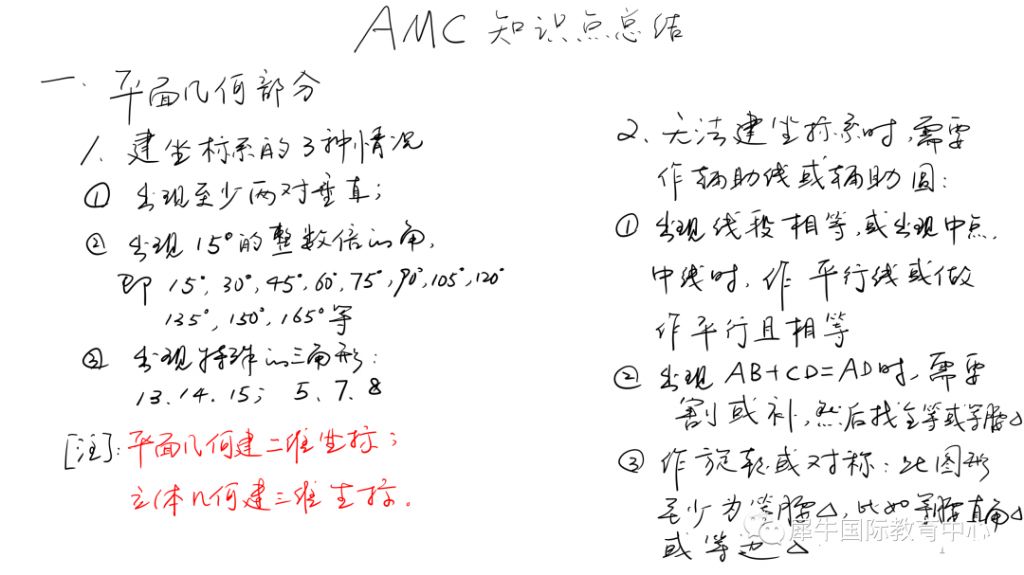 AMC 知识点总结
一. 平面几何部分
1、建坐标系的3种情况
① 出现至少两对垂直;
② 出现15°的整数倍的角,
即 15°, 30°, 45°, 60°, 75°, 90°, 105°, 120°
135°, 150°, 165°等
③ 出现特殊的三角形:
13. 14. 15; 5. 7. 8
[注]: 平面几何建二维坐标;
立体几何建三维坐标.
2、无法建坐标系时,需要
作辅助线或辅助圆:
① 出现线段相等,或出现中点.
中线时,作平行线或做
作平行且相等
② 出现 AB+CD=AD时,需要
割或补,然后找全等或等腰△
③ 作旋转或对称:此图形
至少为等腰△,比如等腰直角△
或等边△
犀牛国际教育中心